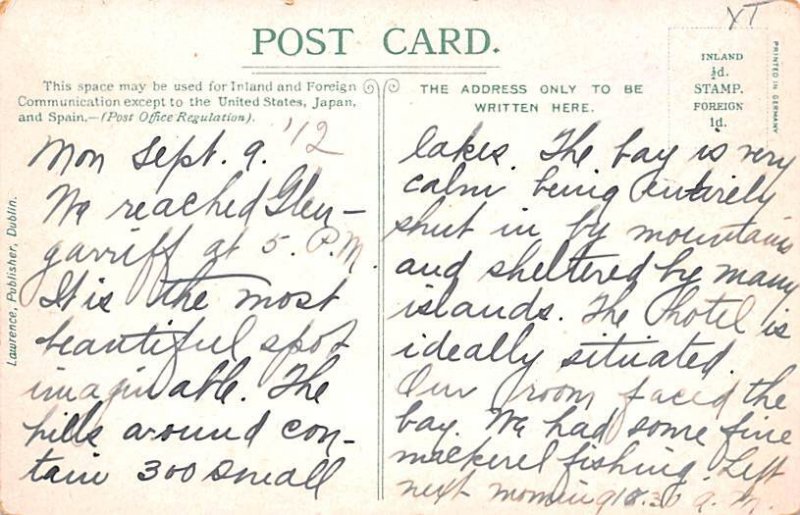 XT
POST CARD.
This space may be used for Inland and Foreign
Communication except to the United States, Japan,
and Spain.—(Post Office Regulation).
THE ADDRESS ONLY TO BE
WRITTEN HERE.
INLAND
½d.
STAMP.
FOREIGN
1d.
PRINTED IN GERMANY
Lawrence, Publisher, Dublin.
Mon Sept. 9. '12
We reached Glen-
garriff at 5. P.M.
It is the most
beautiful spot
imaginable. The
hills around con-
tain 300 small
lakes. The bay is very
calm being entirely
shut in by mountains
and sheltered by many
islands. The hotel is
ideally situated.
Our room faced the
bay. We had some fine
mackerel fishing. Left
next morning 8.30 A.M.